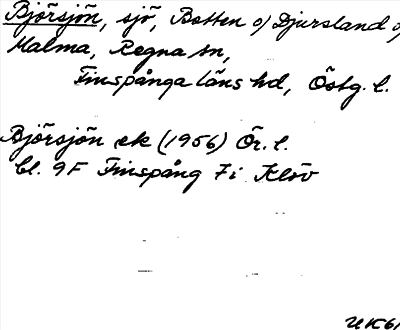 Björsjön, sjö, Botten o/ Djursland o/
Malma, Regna sn,
Finspånga läns hd, Östg. l.
Björsjön ek (1956) Ör. l.
bl. 9F Finspång 7i Klöv
UK61